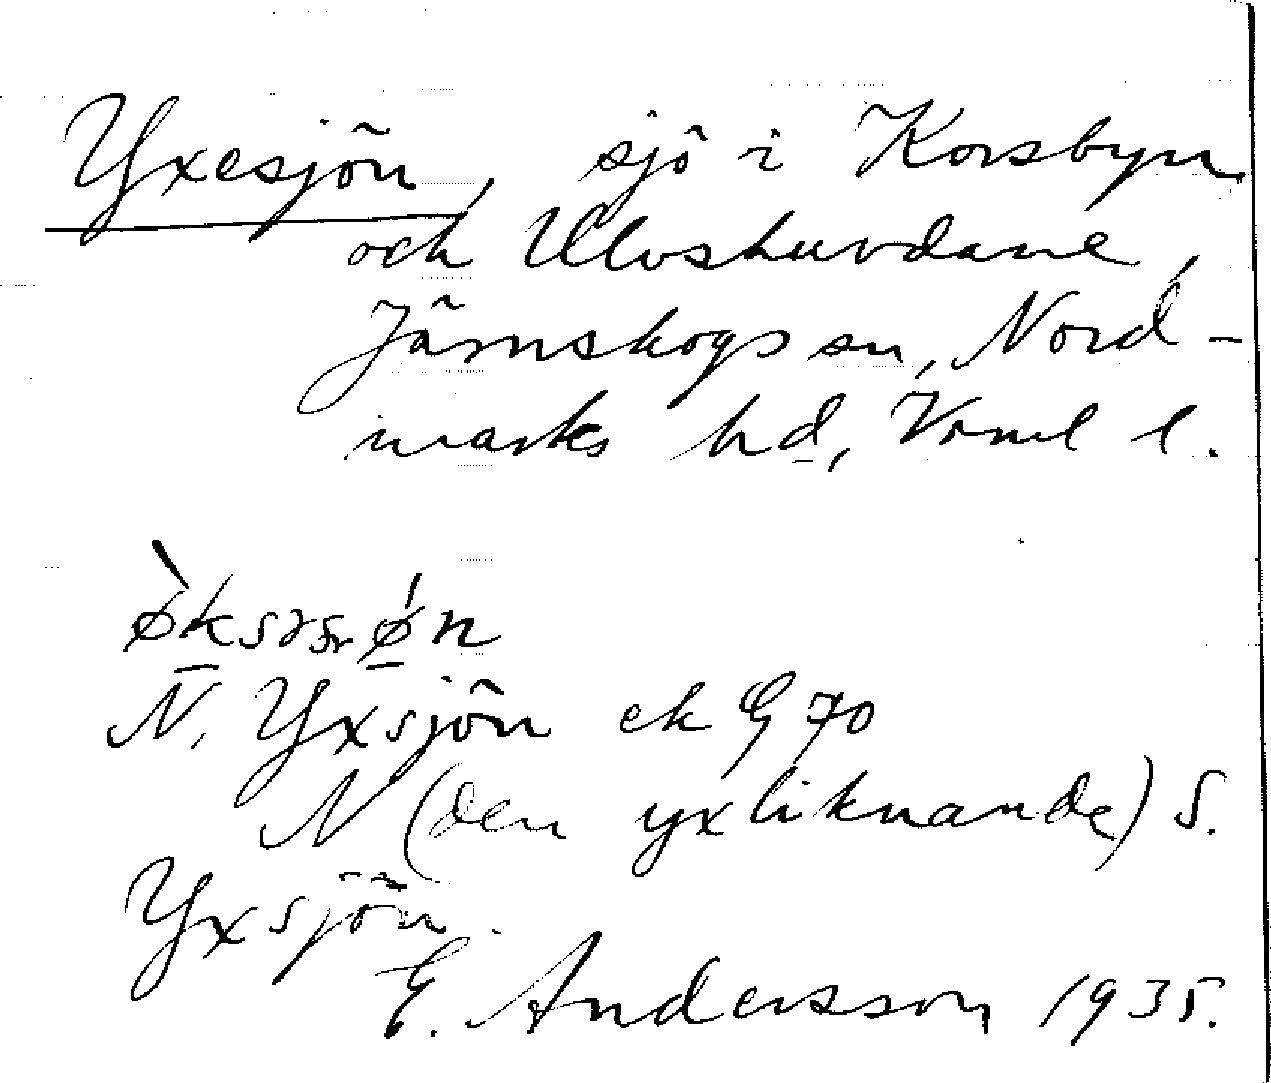 Yxesjön, sjö i Korsbyn
och Ulvshuvdane,
Järnskogs sn, Nord-
marks hd, Vrml l.
N. Yxsjön ek G 70
N (den yxliknande) S.
Yxsjön.
E. Andersson 1935.